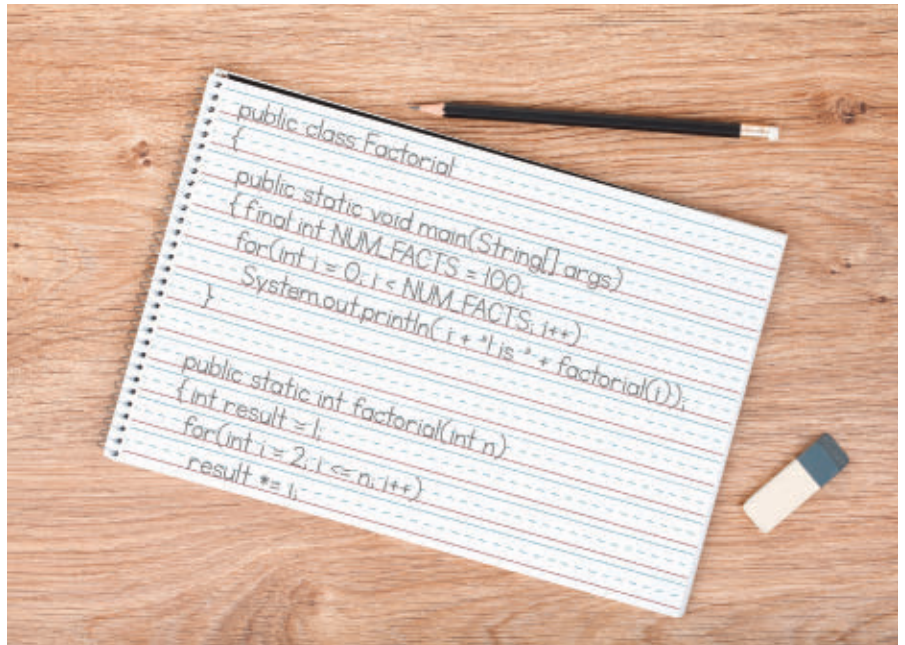 public class Factorial
{
public static void main(String[] args)
{ final int NUM_FACTS = 100;
for(int i = 0; i < NUM_FACTS; i++)
System.out.println( i + "! is " + factorial(i));
}
public static int factorial(int n)
{ int result = 1;
for(int i = 2; i <= n; i++)
result *= i;